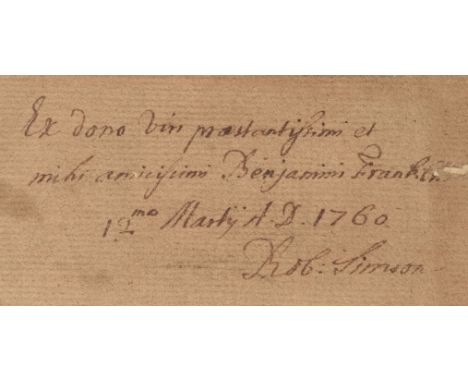 Ex dono Viri præstantissimi et
mihi amicissimi Benjamini Franklin
12mo Martij A. D. 1760
Rob: Simson